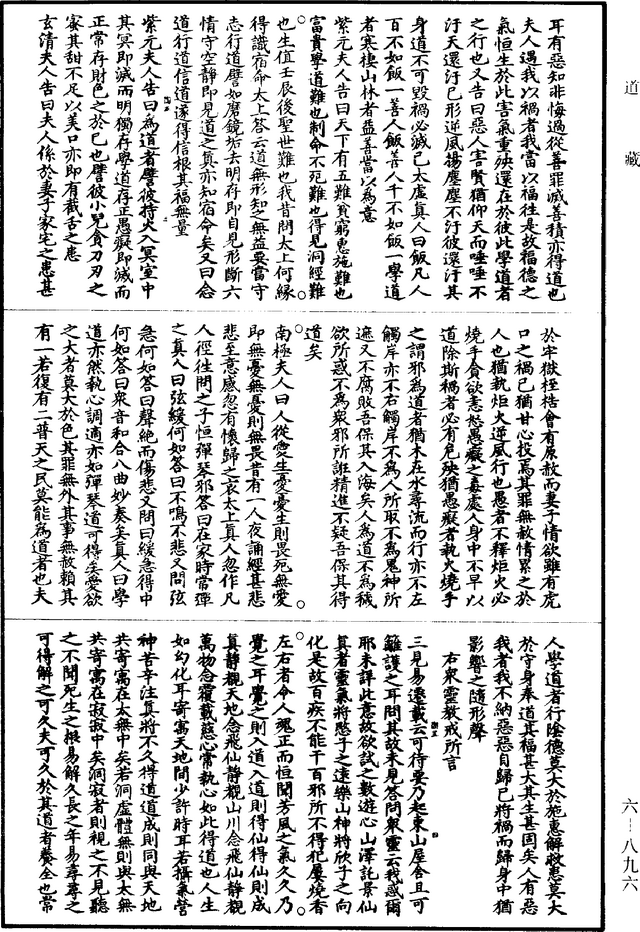 道藏
耳有惡知非悔過從善罪滅善積亦得道也
夫人遇我以禍者我當以福往是故福德之
氣恒生於此害氣重殃還在於彼此學道者
之行也又告曰惡人害賢猶仰天而唾唾不
汙天還汙己形逆風揚塵塵不汙彼還汙其
身道不可毀禍必滅己太虛真人曰飯凡人
百不如飯一善人飯善人千不如飯一學道
者寒棲山林者益善當以為意
紫元夫人告曰天下有五難貧窮惠施難也
富貴學道難也制命不死難也得見洞經難
也生值壬辰後聖世難也我昔問太上何緣
得識宿命太上答云道無形知之無益要當守
志行道譬如磨鏡垢去明存即自見形斷六
情守空靜即見道之真亦知宿命矣又曰念
道行道信道遂得信根其福無量
紫元夫人告曰為道者譬彼持火入冥室中
其冥即滅而明獨存學道存正愚癡即滅而
正常存財色之於己也譬彼小兒貪刀刃之
蜜其甜不足以美口亦即有截舌之患
玄清夫人告曰夫人係於妻子家宅之患甚
於牢獄桎梏會有原赦而妻子情欲雖有虎
口之禍己猶甘心投焉其罪無赦情累之於
人也猶執炬火逆風行也愚者不釋炬火必
燒手貪欲恚怒愚癡之毒處人身中不早以
道除斯禍者必有危殃猶愚癡者執火燒手
之謂邪為道者猶木在水尋流而行亦不左
觸岸亦不右觸岸不為人所取不為鬼神所
遮又不腐敗吾保其入海矣人為道不為穢
欲所惑不為眾邪所誑精進不疑吾保其得
道矣
南極夫人曰人從愛生憂憂生則畏死無愛
即無憂無憂則無畏昔有一人夜誦經甚悲
悲至意感忽有懷歸之哀太上真人忽作凡
人徑往問之子恒彈琴邪答曰在家時常彈
之真人曰弦緩何如答曰不鳴不悲又問弦
急何如答曰聲絕而傷悲又問曰緩急得中
何如答曰眾音和合八曲妙奏矣真人曰學
道亦然執心調適亦如彈琴道可得矣愛欲
之大者莫大於色其罪無外其事無赦賴其
有一若復有二普天之民莫能為道者也夫
人學道者行陰德莫大於施惠解救患莫大
於守身奉道其福甚大其生甚固矣人有惡
我者我不納惡惡自歸己將禍而歸身中猶
影響之隨形聲
右眾靈教戒所言
三見易遷載云可待要乃起東山屋舍且可
籬護之耳問其故未見答問眾靈云我惑爾
耶未詳此意故欲試之數遊心山澤託景仙
真者靈氣將愍子之遠樂山神將欣子之向
化是故百疾不能干百邪所不得犯屢燒香
左右者令人魂正而恒聞芳風之氣久久乃
覺之耳覺之則入道入道則得仙得仙則成
真靜觀天地念飛仙靜觀山川念飛仙靜觀
萬物念覆載慈心常執心如此得道也人生
如幻化耳寄寓天地間少許時耳若攝氣營
神苦辛注真將不久得道道成則同與天地
共寄寓在太無中矣若洞虛體無則與太無
共寄寓在寂寂中矣洞寂者則視之不見聽
之不聞死生之根易解久長之年易尋尋之
可得解之可久夫可久於其道者養全也常
六-八九六